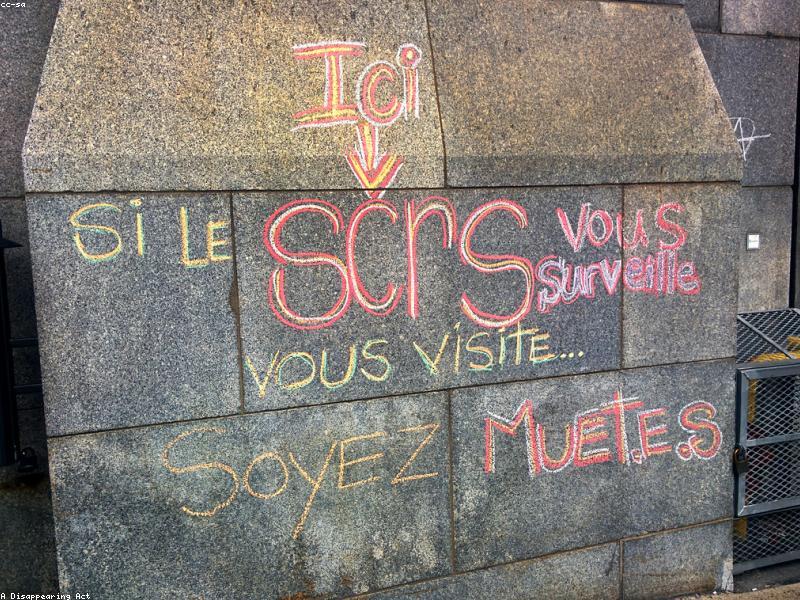 cc-sa
Ici
SI LE SCRS vous surveille
VOUS VISITE...
SOYEZ MUET.E.S
A Disappearing Act